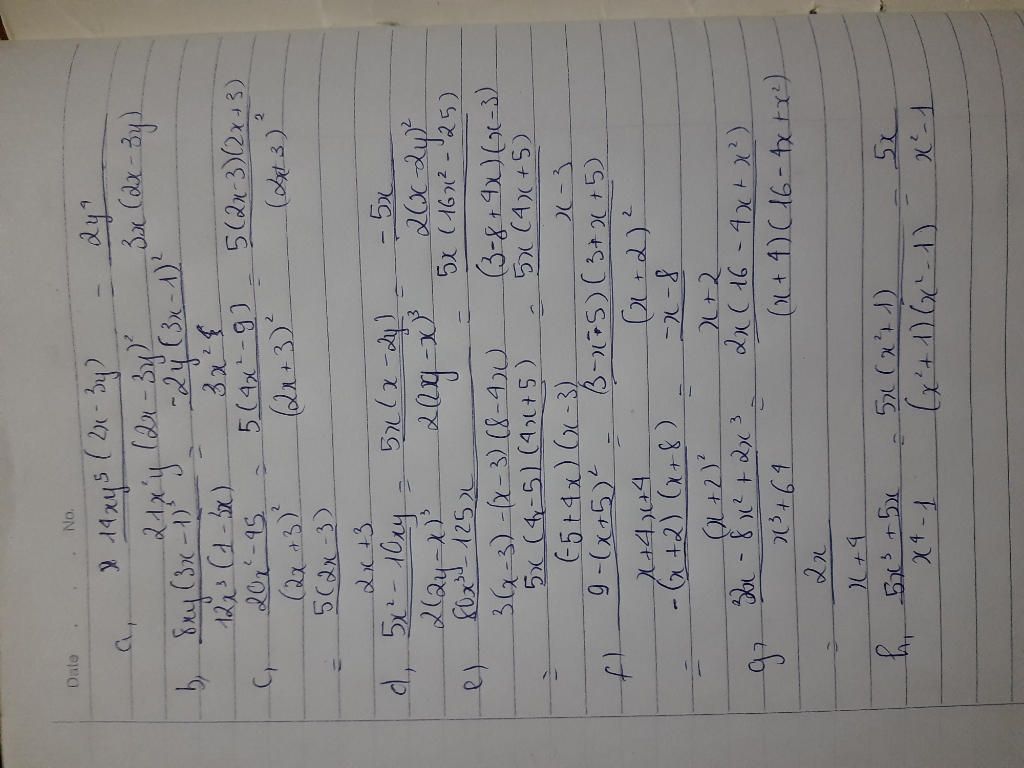 Date . . . No.
a, 14xy⁵(2x - 3y) / 21x²y(2x - 3y)² = 2y⁴ / 3x(2x - 3y)
b, 8xy(3x - 1)³ / 12x³(1 - 3x) = -2y(3x - 1)² / 3x²
c, 20x² - 45 / (2x + 3)² = 5(4x² - 9) / (2x + 3)² = 5(2x - 3)(2x + 3) / (2x + 3)²
= 5(2x - 3) / 2x + 3
d, 5x² - 10xy / 2(2y - x)³ = 5x(x - 2y) / 2(2y - x)³ = -5x / 2(x - 2y)²
e, 80x³ - 125x / 3(x - 3) - (x - 3)(8 - 4x) = 5x(16x² - 25) / (3 - 8 + 4x)(x - 3)
= 5x(4x - 5)(4x + 5) / (-5 + 4x)(x - 3) = 5x(4x + 5) / x - 3
f, 9 - (x + 5)² / x + 4x + 4 = (3 - x - 5)(3 + x + 5) / (x + 2)²
= -(x + 2)(x + 8) / (x + 2)² = -x - 8 / x + 2
g, 32x - 8x² + 2x³ / x³ + 64 = 2x(16 - 4x + x²) / (x + 4)(16 - 4x + x²)
= 2x / x + 4
h, 5x³ + 5x / x⁴ - 1 = 5x(x² + 1) / (x² + 1)(x² - 1) = 5x / x² - 1